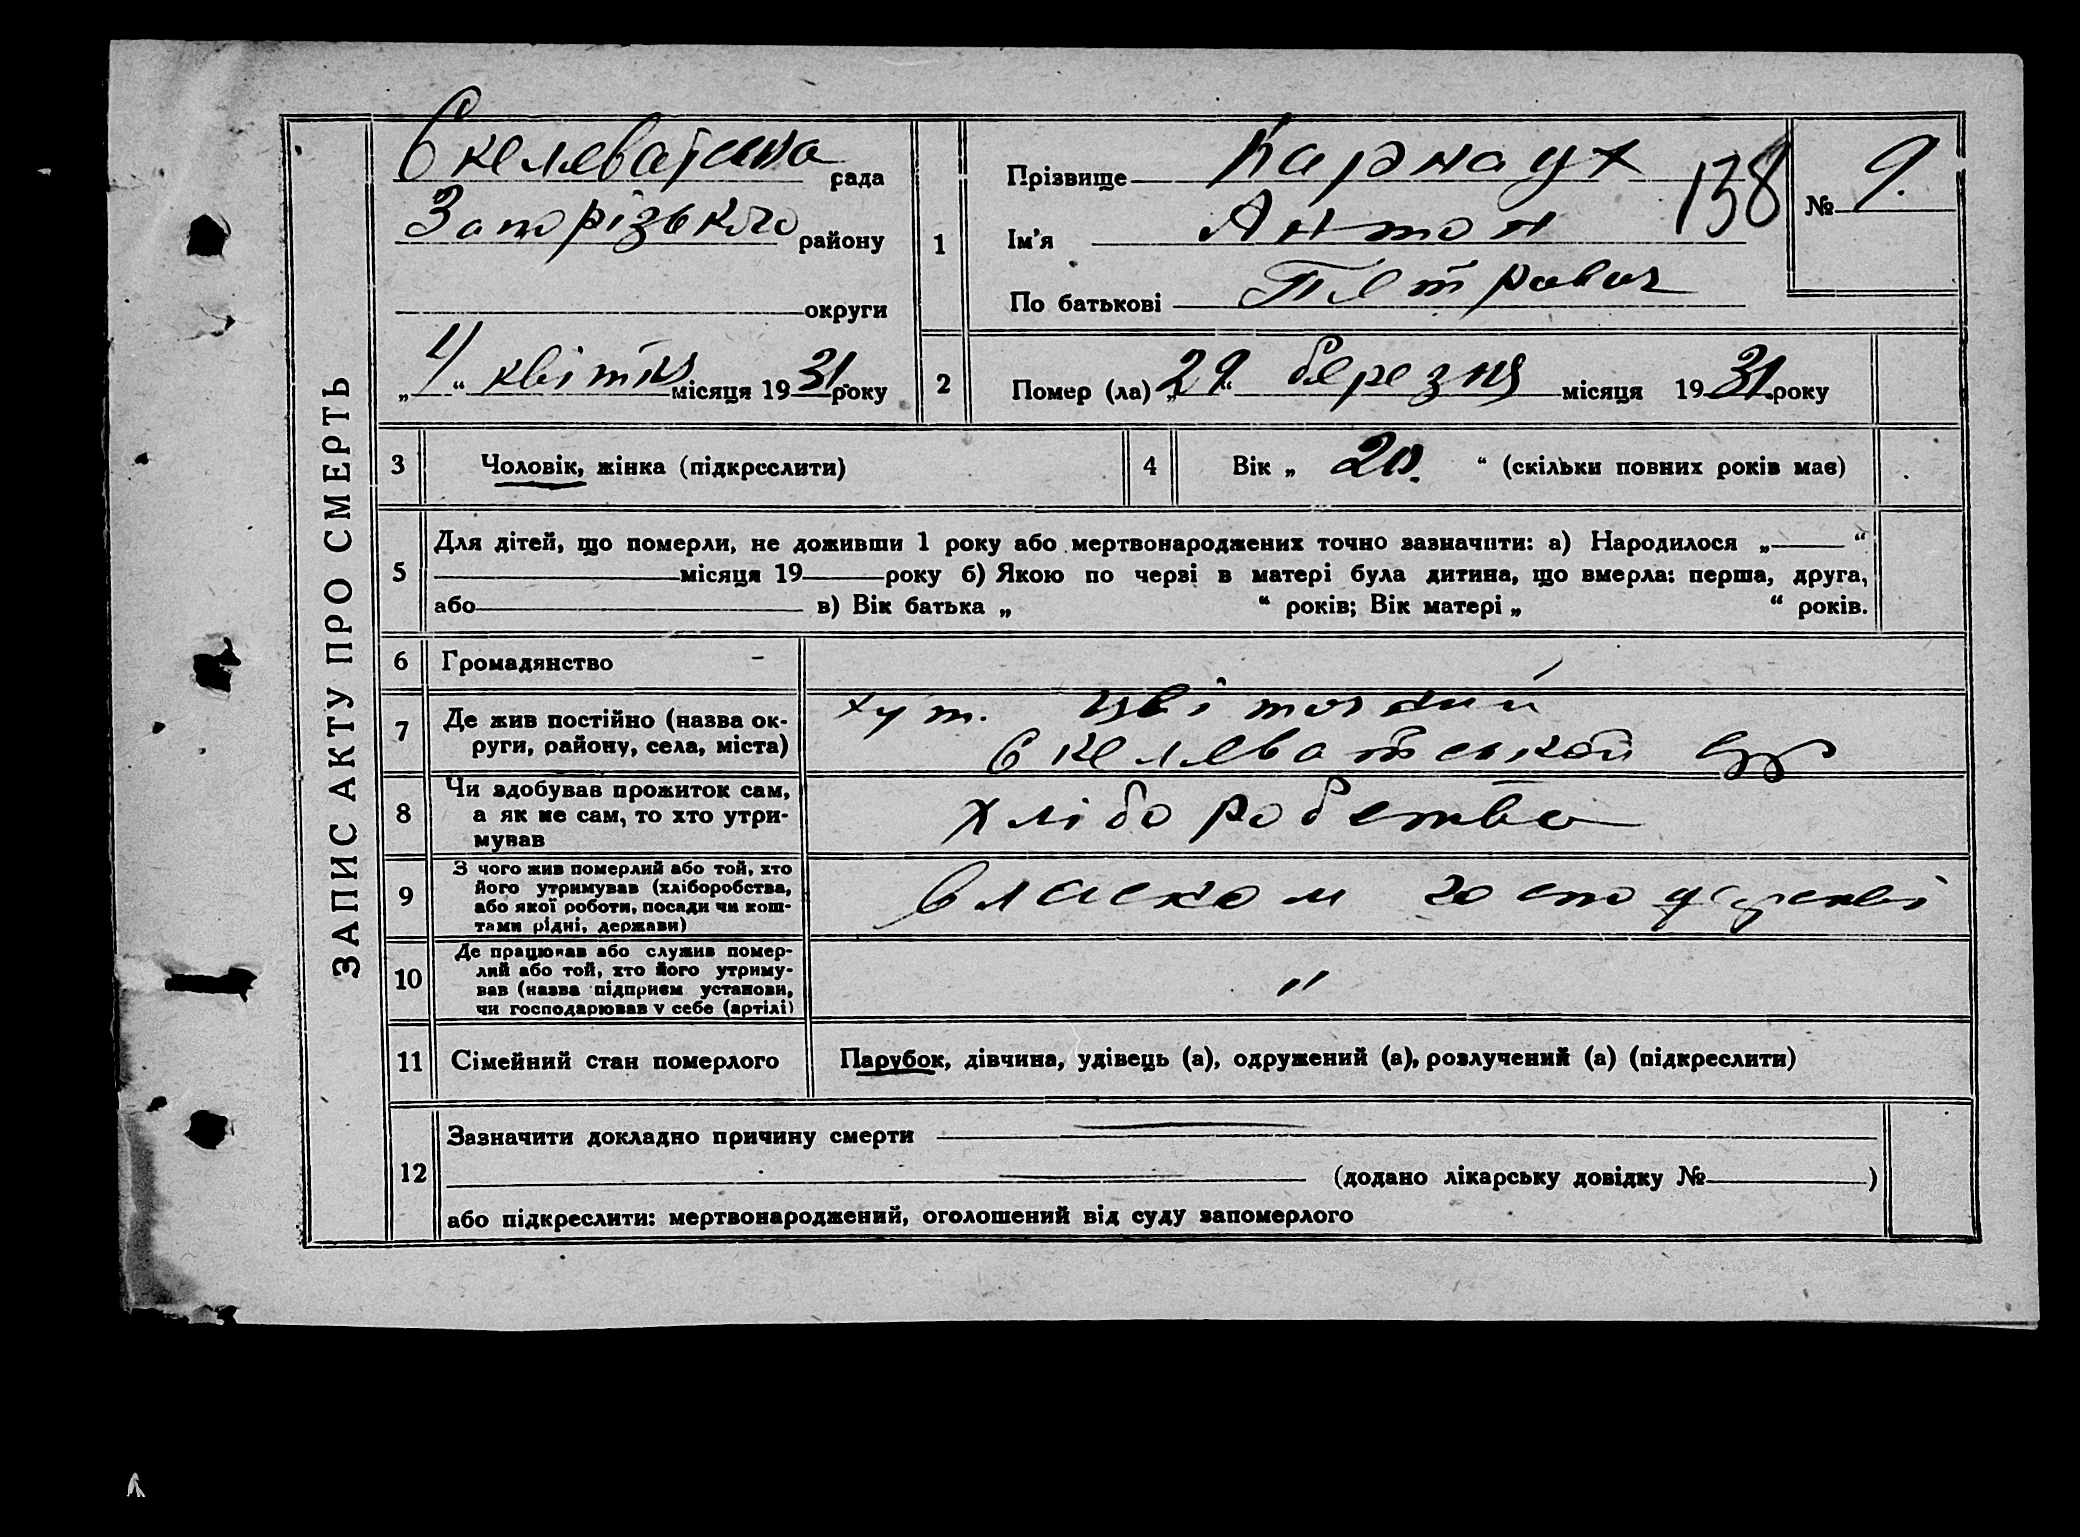 ЗАПИС АКТУ ПРО СМЕРТЬ
Скелеватська рада
Запорізького району
округи
„4“ квітня місяця 1931 року
1
Прізвище Карнаух
Ім'я Антон
По батькові Петрович
138
№ 9.
2
Помер (ла) „29“ березня місяця 1931 року
3 Чоловік, жінка (підкреслити)
4 Вік „20.“ (скільки повних років має)
5 Для дітей, що померли, не доживши 1 року або мертвонароджених точно зазначити: а) Народилося „ “
місяця 19 року б) Якою по черзі в матері була дитина, що вмерла: перша, друга,
або в) Вік батька „ “ років; Вік матері „ “ років.
6 Громадянство -
7 Де жив постійно (назва ок-
руги, району, села, міста)
хут. Цвіточний
Скелеватської с/р
8 Чи здобував прожиток сам,
а як не сам, то хто утри-
мував
хліборобство
9 З чого жив померлий або той, хто
його утримував (хліборобства,
або якої роботи, посади чи кош-
тами рідні, держави)
власном господарстві
10 Де працював або служив помер-
лий або той, хто його утриму-
вав (назва підприєм установи,
чи господарював у себе (артілі)
"
11 Сімейний стан померлого
Парубок, дівчина, удівець (а), одружений (а), розлучений (а) (підкреслити)
12 Зазначити докладно причину смерти
(додано лікарську довідку № )
або підкреслити: мертвонароджений, оголошений від суду запомерлого